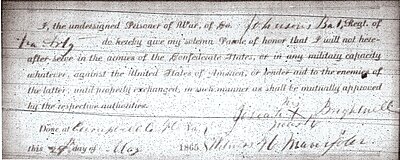 I, the undersigned Prisoner of War, of Co. Johnsons Bat, Regt. of
Va Arty do hereby give my solemn Parole of honor that I will not here-
after serve in the armies of the Confederate States, or in any military capacity
whatever, against the United States of America, or render aid to the enemies of
the latter, until properly exchanged, in such manner as shall be mutually approved
by the respective authorities.
Brightwell
Done at Campbell C. H. Va
this day of May 1865